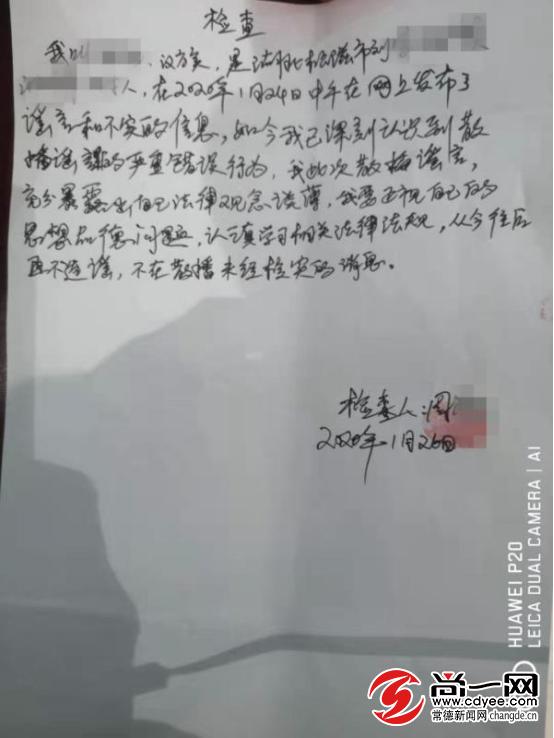 检查
我叫 ,汉族,是湖北松滋市刘
人,在2020年1月24日中午在网上发布了
谣言和不实的信息,如今我已深刻认识到散
播谣言的严重错误行为,我此次散播谣言,
充分暴露出自己法律观念淡薄,我要正视自己的
思想品德问题,认真学习相关法律法规,从今往后
再不造谣,不在散播未经检实的消息。
检查人:周
2020年1月26日
HUAWEI P20
LEICA DUAL CAMERA | AI
尚一网
www.cdyee.com
常德新闻网changde.cn